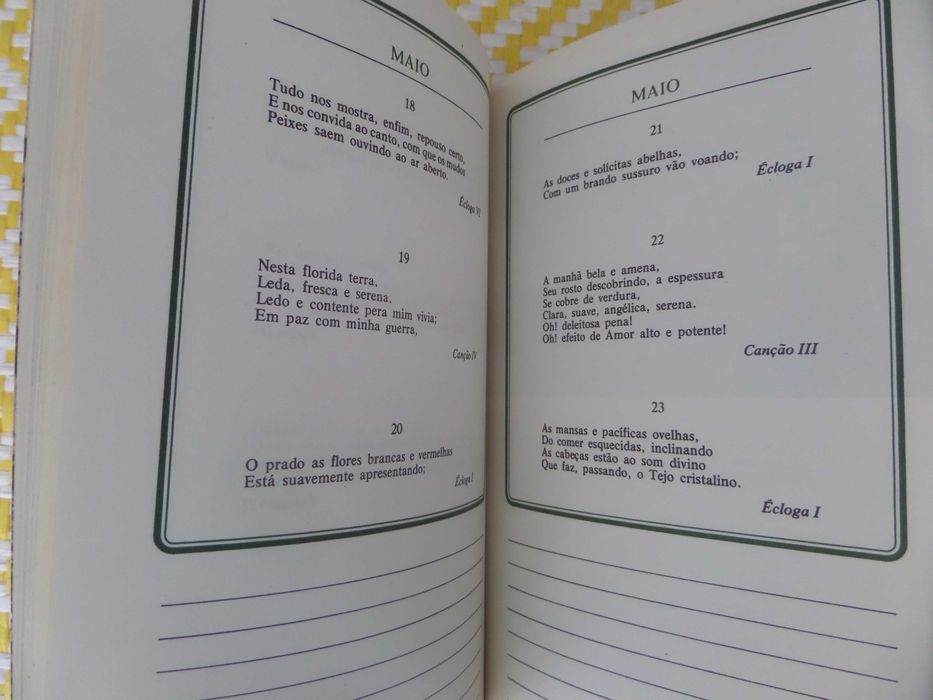 MAIO
18
Tudo nos mostra, enfim, repouso certo,
E nos convida ao canto, com que os mudos
Peixes saem ouvindo ao ar aberto.
Écloga VI
19
Nesta florida terra,
Leda, fresca e serena,
Ledo e contente pera mim vivia;
Em paz com minha guerra,
Canção IV
20
O prado as flores brancas e vermelhas
Está suavemente apresentando;
Écloga I
MAIO
21
As doces e solícitas abelhas,
Com um brando sussuro vão voando;
Écloga I
22
A manhã bela e amena,
Seu rosto descobrindo, a espessura
Se cobre de verdura,
Clara, suave, angélica, serena.
Oh! deleitosa pena!
Oh! efeito de Amor alto e potente!
Canção III
23
As mansas e pacíficas ovelhas,
Do comer esquecidas, inclinando
As cabeças estão ao som divino
Que faz, passando, o Tejo cristalino.
Écloga I